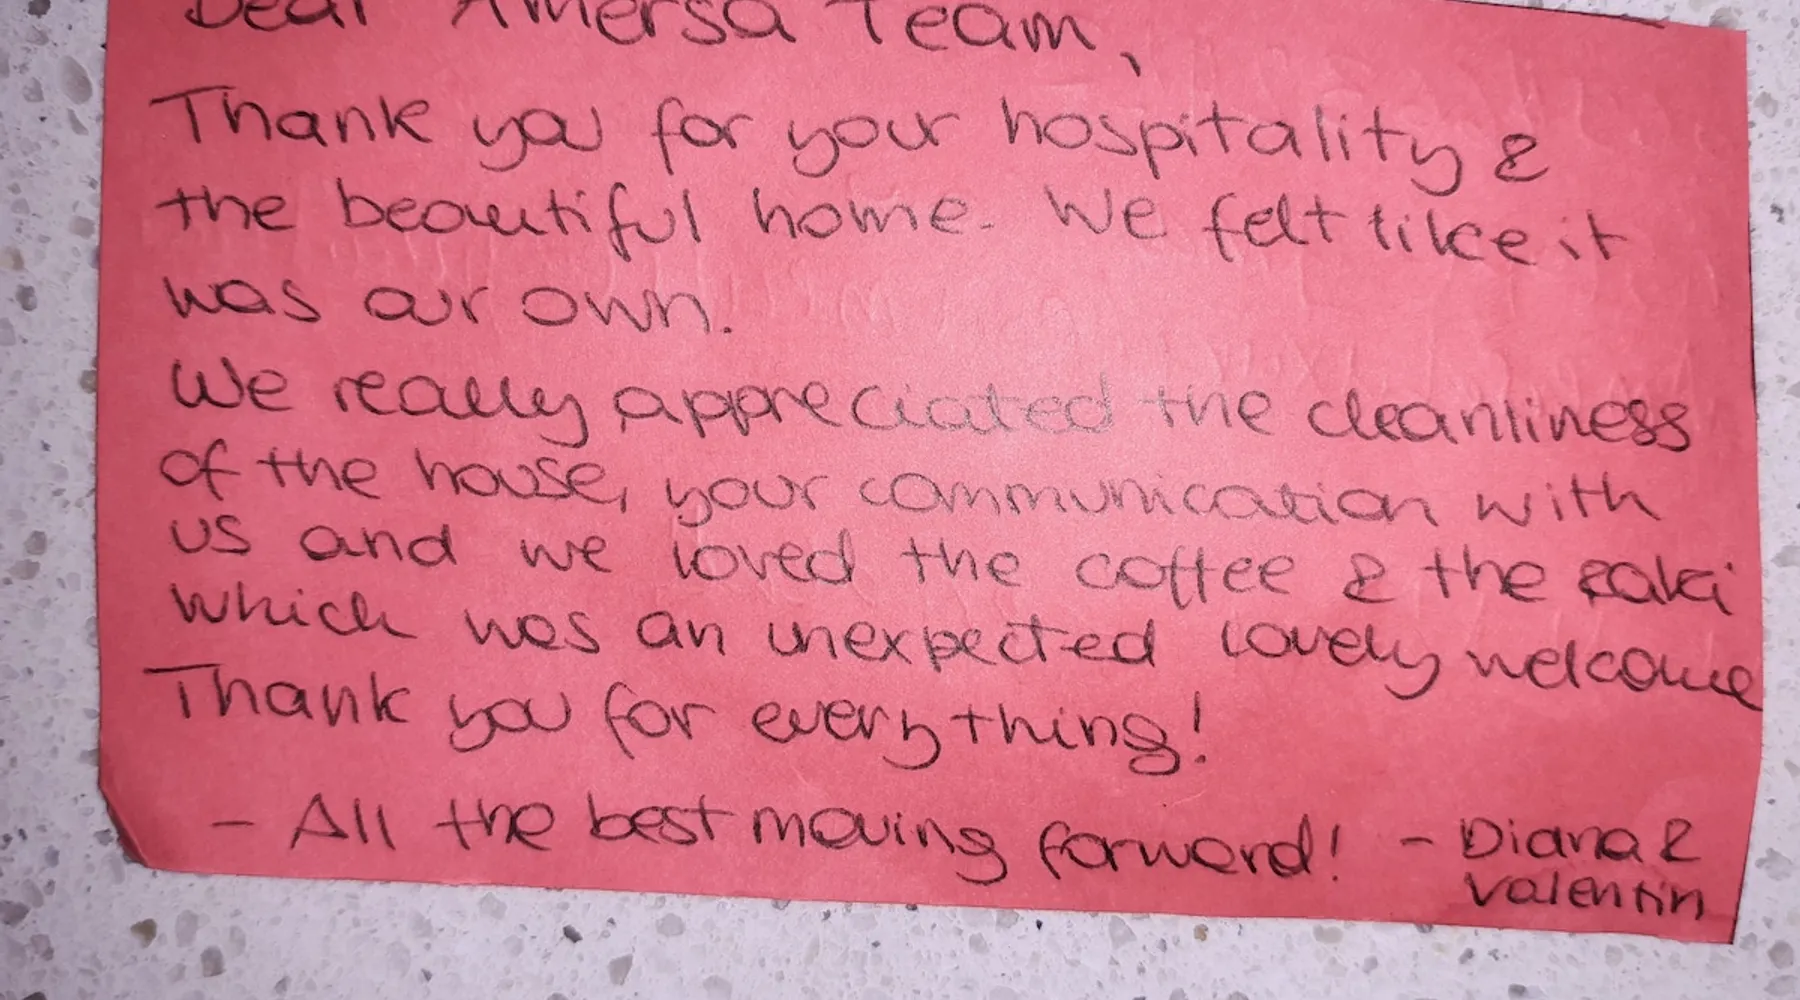 Dear Amersa Team,
Thank you for your hospitality &
the beautiful home. We felt like it
was our own.
We really appreciated the cleanliness
of the house, your communication with
us and we loved the coffee & the raki
which was an unexpected lovely welcome
Thank you for everything!
- All the best moving forward! - Diana &
Valentin